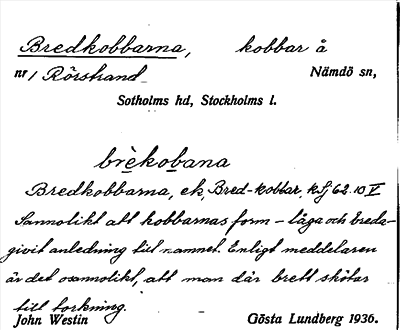 Bredkobbarna, kobbar å
nr 1 Rörstrand Nämdö sn,
Sotholms hd, Stockholms l.
brèkobana
Bredkobbarna, ek, Bred-kobbar, kSj 62. 10 V
Sannolikt att kobbarnas form – låga och breda –
givit anledning till namnet. Enligt meddelaren
är det osannolikt, att man där brett skötar
till torkning.
John Westin Gösta Lundberg 1936.